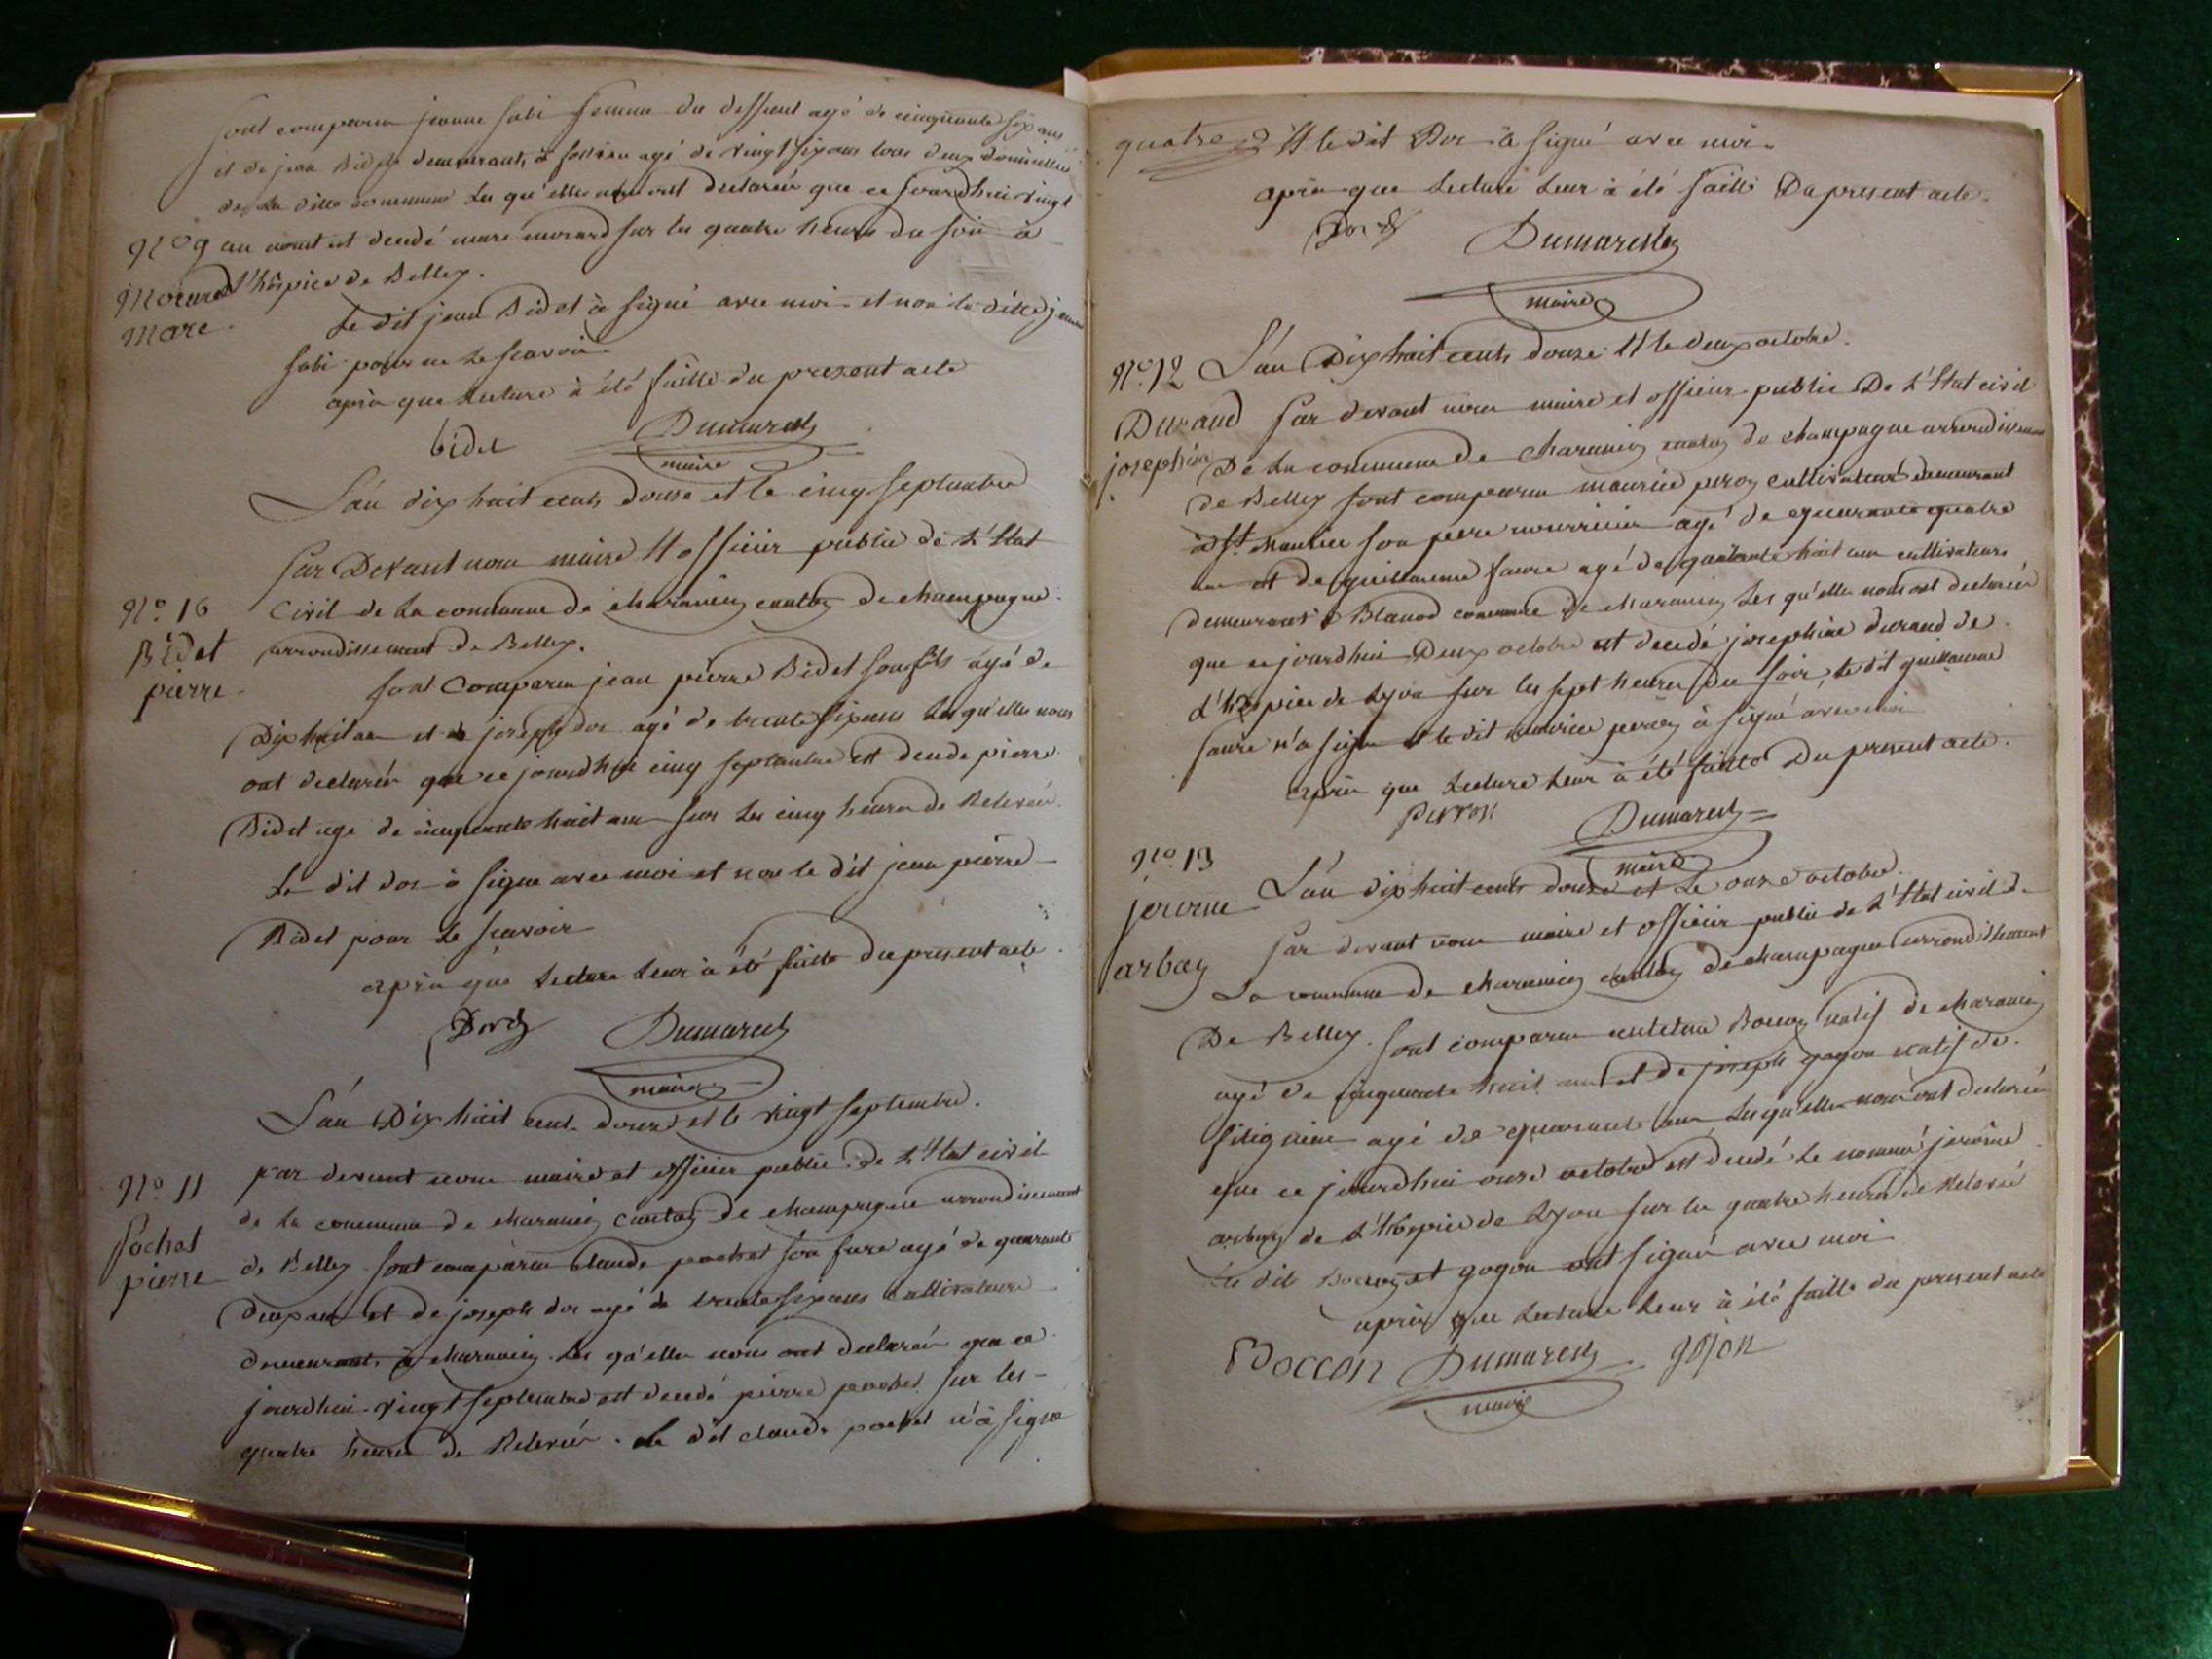 sont comparu jeanne sabi femme du deffunt agé de cinquante six ans
et de jean Bidet demeurants à agé de vingt six ans tous deux domiciliés
de la ditte commune les qu'elles nous ont declarés que ce jourdhui vingt
N° 9 au est decedé marc morard sur les quatre heures du soir à
Morard l'hospice de Belley.
Marc.
Le dit jean Bidet à signé avec moi et non la ditte jeanne
sabi pour ne le scavoir
après que lecture à été faitte du present acte
bidet Dumarest
maire
L'an dix huit cents douse et le cinq septembre
Par Devant nous maire et officier public de l'Etat
N° 10 Civil de la commune de charancin canton de champagne
Bidet arrondissement de Belley.
pierre sont Comparu jean pierre Bidet son fils agé de
Dix huit ans et de joseph dor agé de trente six ans les qu'elles nous
ont declarés que ce jourdhui cinq septembre est decedé pierre
Bidet age de cinquante huit ans sur les cinq heures de Relevée
Le dit dor à signe avec moi et non le dit jean pierre
Bidet pour le scavoir
après que lecture leur à été faitte du present acte
Dor Dumarest
maire
L'an Dix huit cent douse et le vingt septembre.
par devant nous maire et officier public de l'Etat civil
N° 11 de la commune de charancin canton de champagne arrondissement
Pochet de Belley sont comparu claude pochet son frere agé de quarante
pierre deux ans et de joseph dor agé de trente six ans cultivateurs
demeurants à charancin les qu'elles nous ont declarés que ce
jourdhui vingt septembre est decedé pierre pochet sur les
quatre heures de Relevée. le dit claude pochet n'à signe
quatre et le dit Dor à signé avec moi
après que Lecture Leur à été faitte Du present acte.
Dor Dumarest
maire
N° 12 L'an Dix huit cents douse et le deux octobre.
Durand Par devant nous maire et officier public De l'Etat civil
josephine De la commune de charancin canton de champagne arrondissement
de Belley sont comparu maurice peron cultivateur demeurant
à St. maurice son pere nourricier agé de quarante quatre
ans et de guillaume faure agé de quarante huit ans cultivateurs
demeurant à Blanod commune de charancin les qu'elles nous ont declarés
que ce jourdhui Deux octobre est decedé josephine durand de
l'hospice de Lyon sur les sept heures Du soir, le dit guillaume
faure n'a signe et le dit maurice peron à signé avec moi
après que Lecture leur à été faitte Du present acte.
perron Dumarest
maire
N° 13 L'an dix huit cents douse et le onse octobre.
jerome Par devant nous maire et officier public de l'Etat civil de
arbay La commune de charancin canton de champagne arrondissement
De Belley. sont comparu Bocon natif de charancin
agé de cinquante huit ans et de joseph gogon natif de
agé de quarante ans les qu'elles nous ont declarés
que ce jourdhui onse octobre est decedé le nommé jerome
arbay de l'hospice de Lyon sur les quatre heures de Relevée
le dit Bocon et gogon ont signé avec moi
après que Lecture leur à été faitte du present acte
Boccon Dumarest gojon
maire